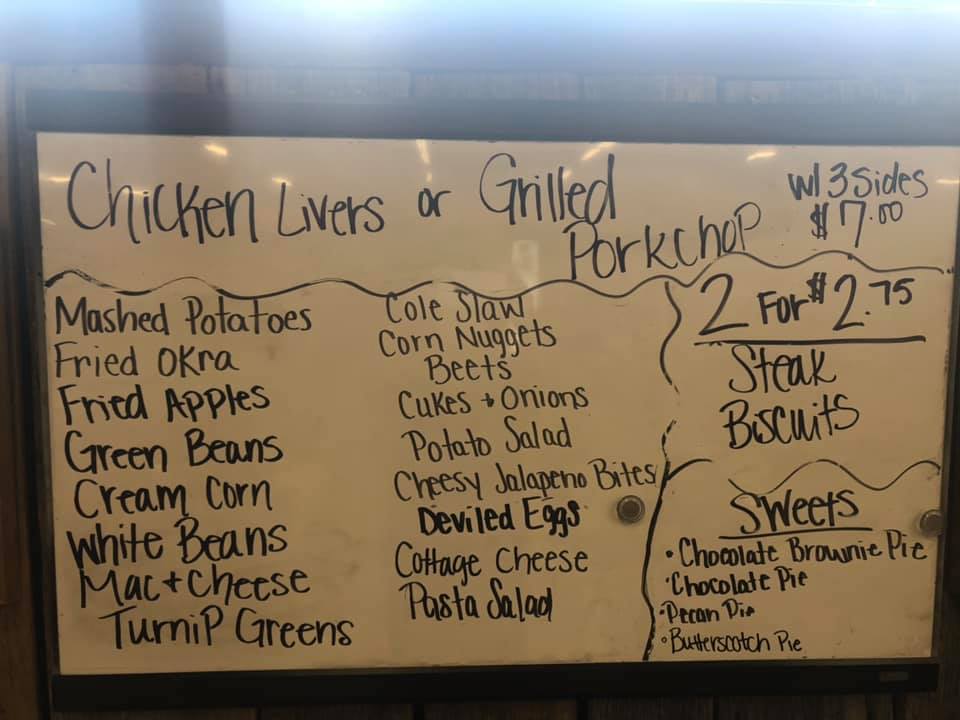 Chicken Livers or Grilled
Porkchop
w/ 3 Sides
$7.00
Mashed Potatoes
Fried Okra
Fried Apples
Green Beans
Cream Corn
White Beans
Mac + Cheese
Turnip Greens
Cole Slaw
Corn Nuggets
Beets
Cukes + Onions
Potato Salad
Cheesy Jalapeno Bites
Deviled Eggs
Cottage Cheese
Pasta Salad
2 For $2.75
Steak
Biscuits
Sweets
• Chocolate Brownie Pie
• Chocolate Pie
• Pecan Pie
• Butterscotch Pie